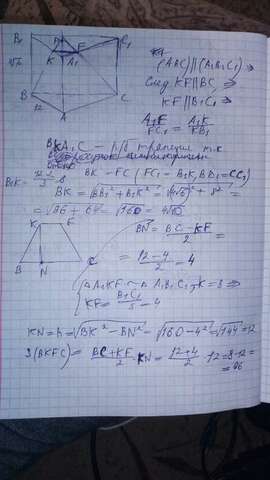 B₁ C₁
K F
A₁
4√6
B C
12
A
(ABC)||(A₁B₁C₁) ⇒
след KF||BC ⇒
KF||B₁C₁
A₁F/FC₁ = A₁K/KB₁
трапеция т.к.
B₁K = 8
BK = FC (FC₁ = B₁K, BB₁ = CC₁)
BK = √(BB₁² + B₁K²) = √((4√6)² + 8²) =
= √(96 + 64) = √160 = 4√10
K F
B N C
BN = (BC − KF)/2 =
= (12 − 4)/2 = 4
△A₁KF ∼ △A₁B₁C₁, k = 3 ⇒
KF = B₁C₁/3 = 4
KN = h = √(BK² − BN²) = √(160 − 4²) = √144 = 12
S(BKFC) = (BC + KF)/2 · KN = (12 + 4)/2 · 12 = 8 · 12 =
= 96